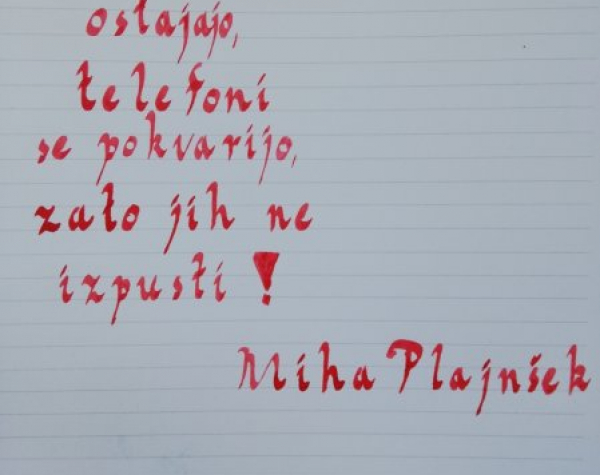 ostajajo,
telefoni
se pokvarijo,
zato jih ne
izpusti!
Miha Plajnšek